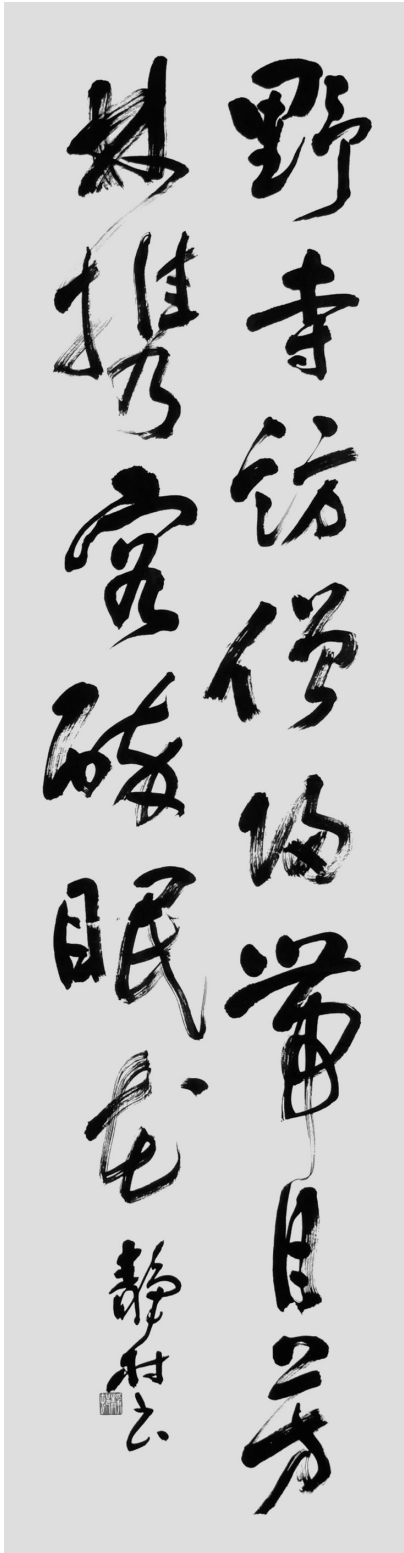 野寺訪僧歸帶目芳
林携客醉眠花
靜村书